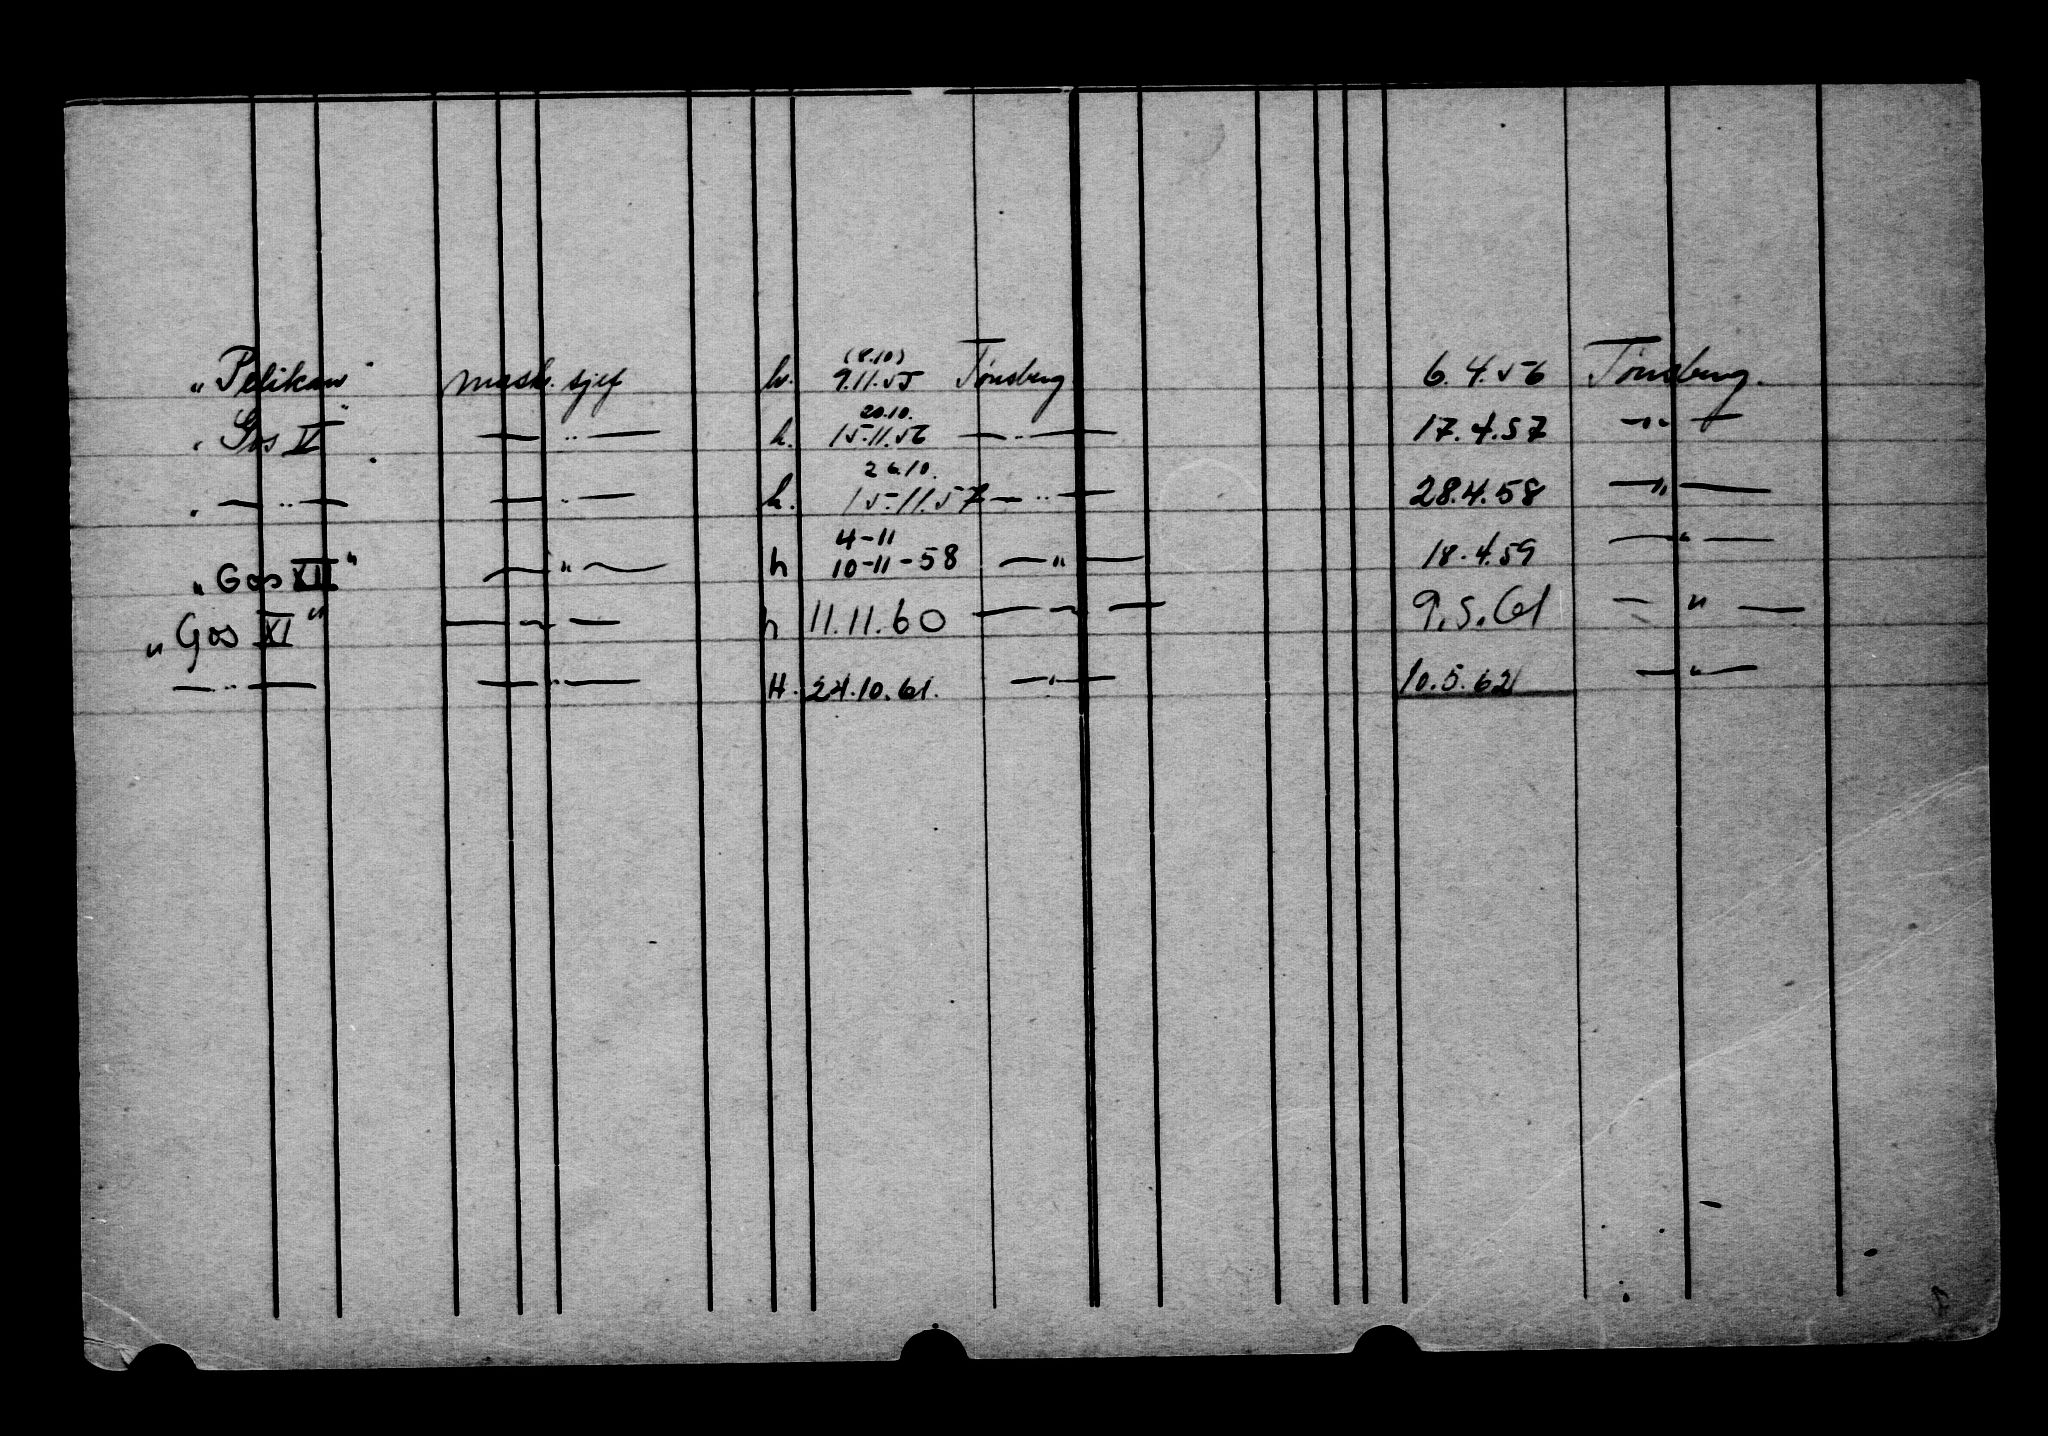 "Pelikan" mask. sjef h. (8.10) 9.11.55 Tønsberg 6.4.56 Tønsberg.
"Gos V" — " — h. 20.10. 15.11.56 — " — 17.4.57 — " —
" — " — — " — h. 26.10. 15.11.57 — " — 28.4.58 — " —
"Gos XII" — " — h 4-11 10-11-58 — " — 18.4.59 — " —
"Gos XI" — " — h 11.11.60 — " — 9.5.61 — " —
— " — — " — H. 24.10.61. — " — 10.5.62 — " —